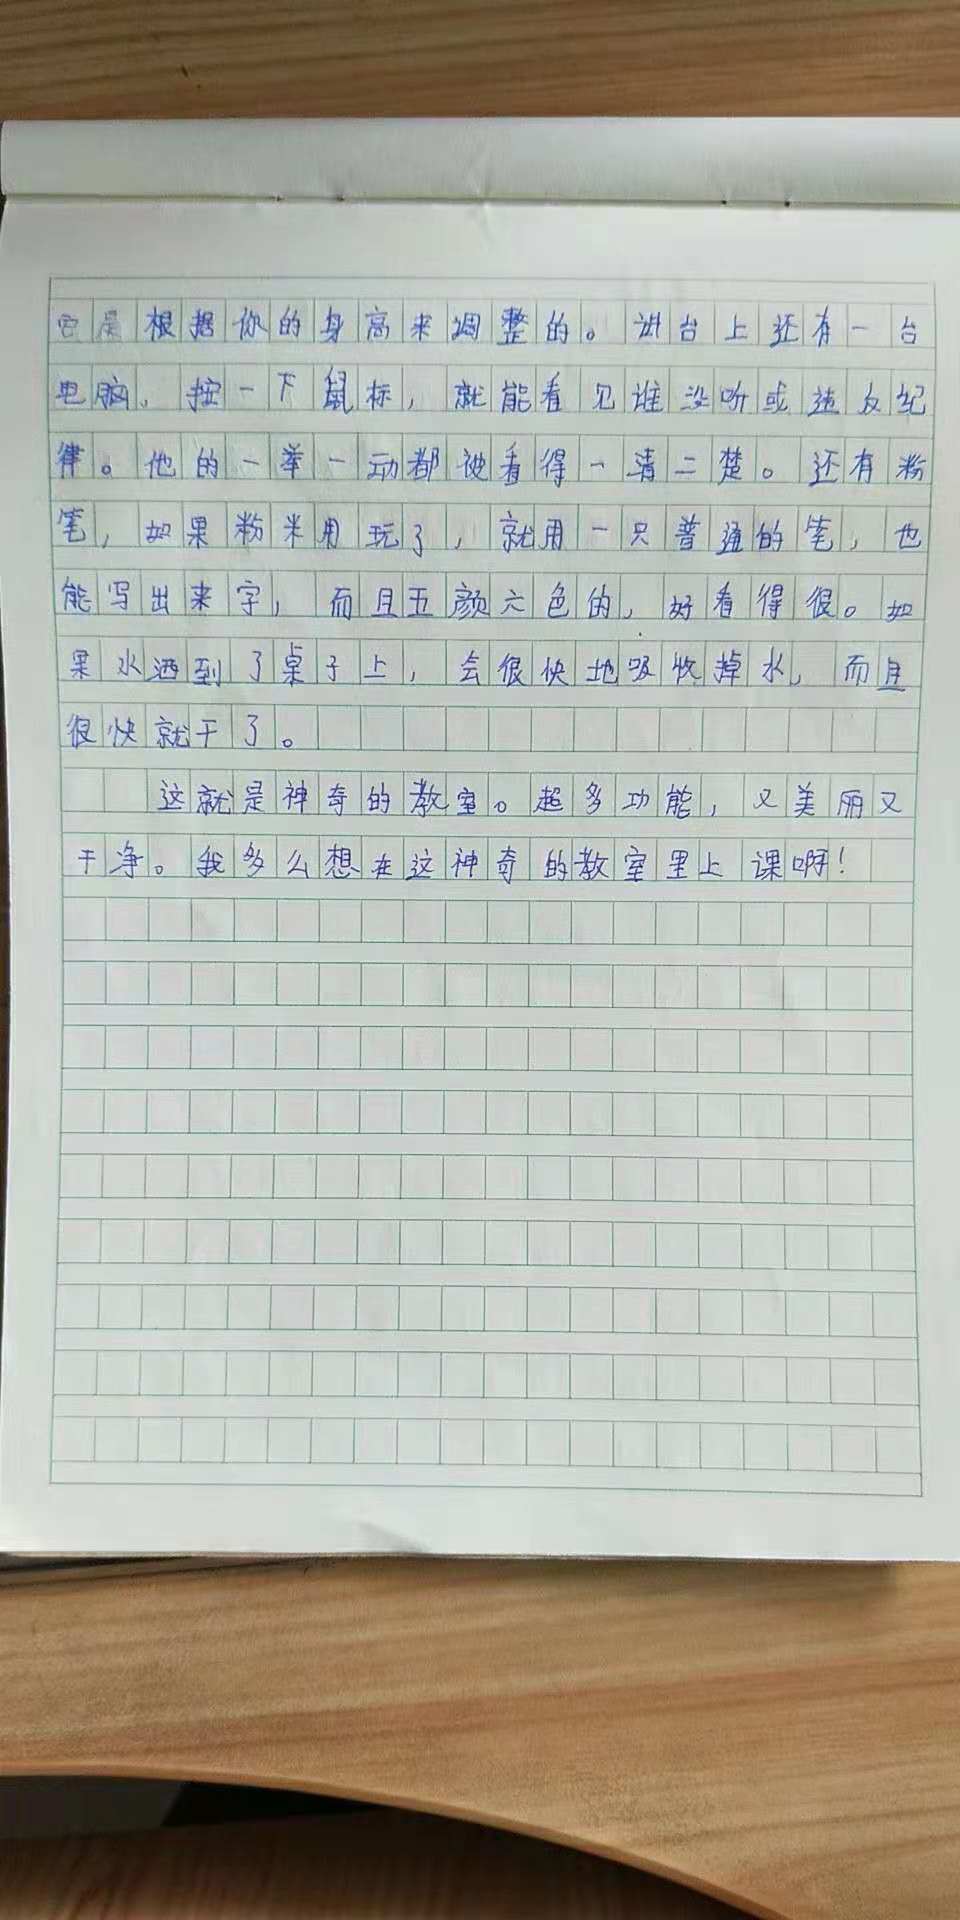 它是根据你的身高来调整的。讲台上还有一台
电脑，按一下鼠标，就能看见谁没听或违反纪
律。他的一举一动都被看得一清二楚。还有粉
笔，如果粉米用玩了，就用一只普通的笔，也
能写出来字，而且五颜六色的，好看得很。如
果水洒到了桌子上，会很快地吸收掉水，而且
很快就干了。
这就是神奇的教室。超多功能，又美丽又
干净。我多么想在这神奇的教室里上课啊！